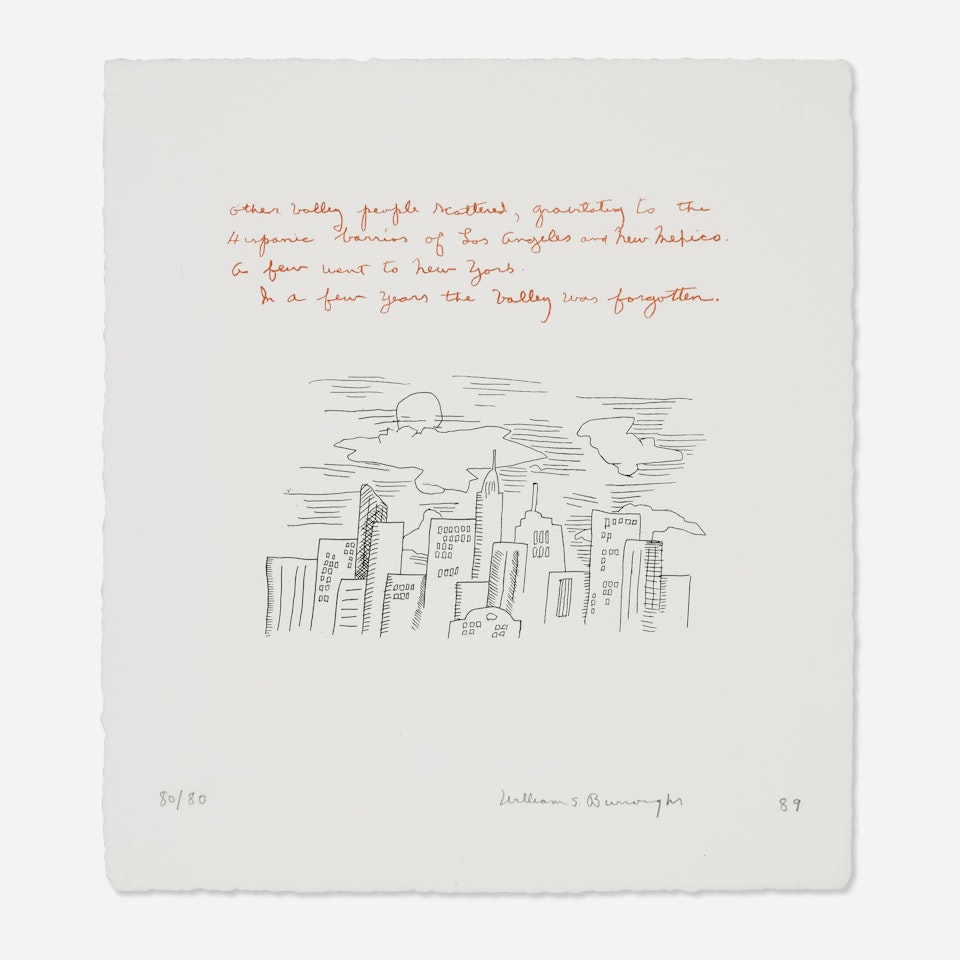 Other Valley people scattered, gravitating to the
Hispanic barrios of Los Angeles and New Mexico.
A few went to New York.
In a few years the Valley was forgotten.
80/80
William S. Burroughs
89